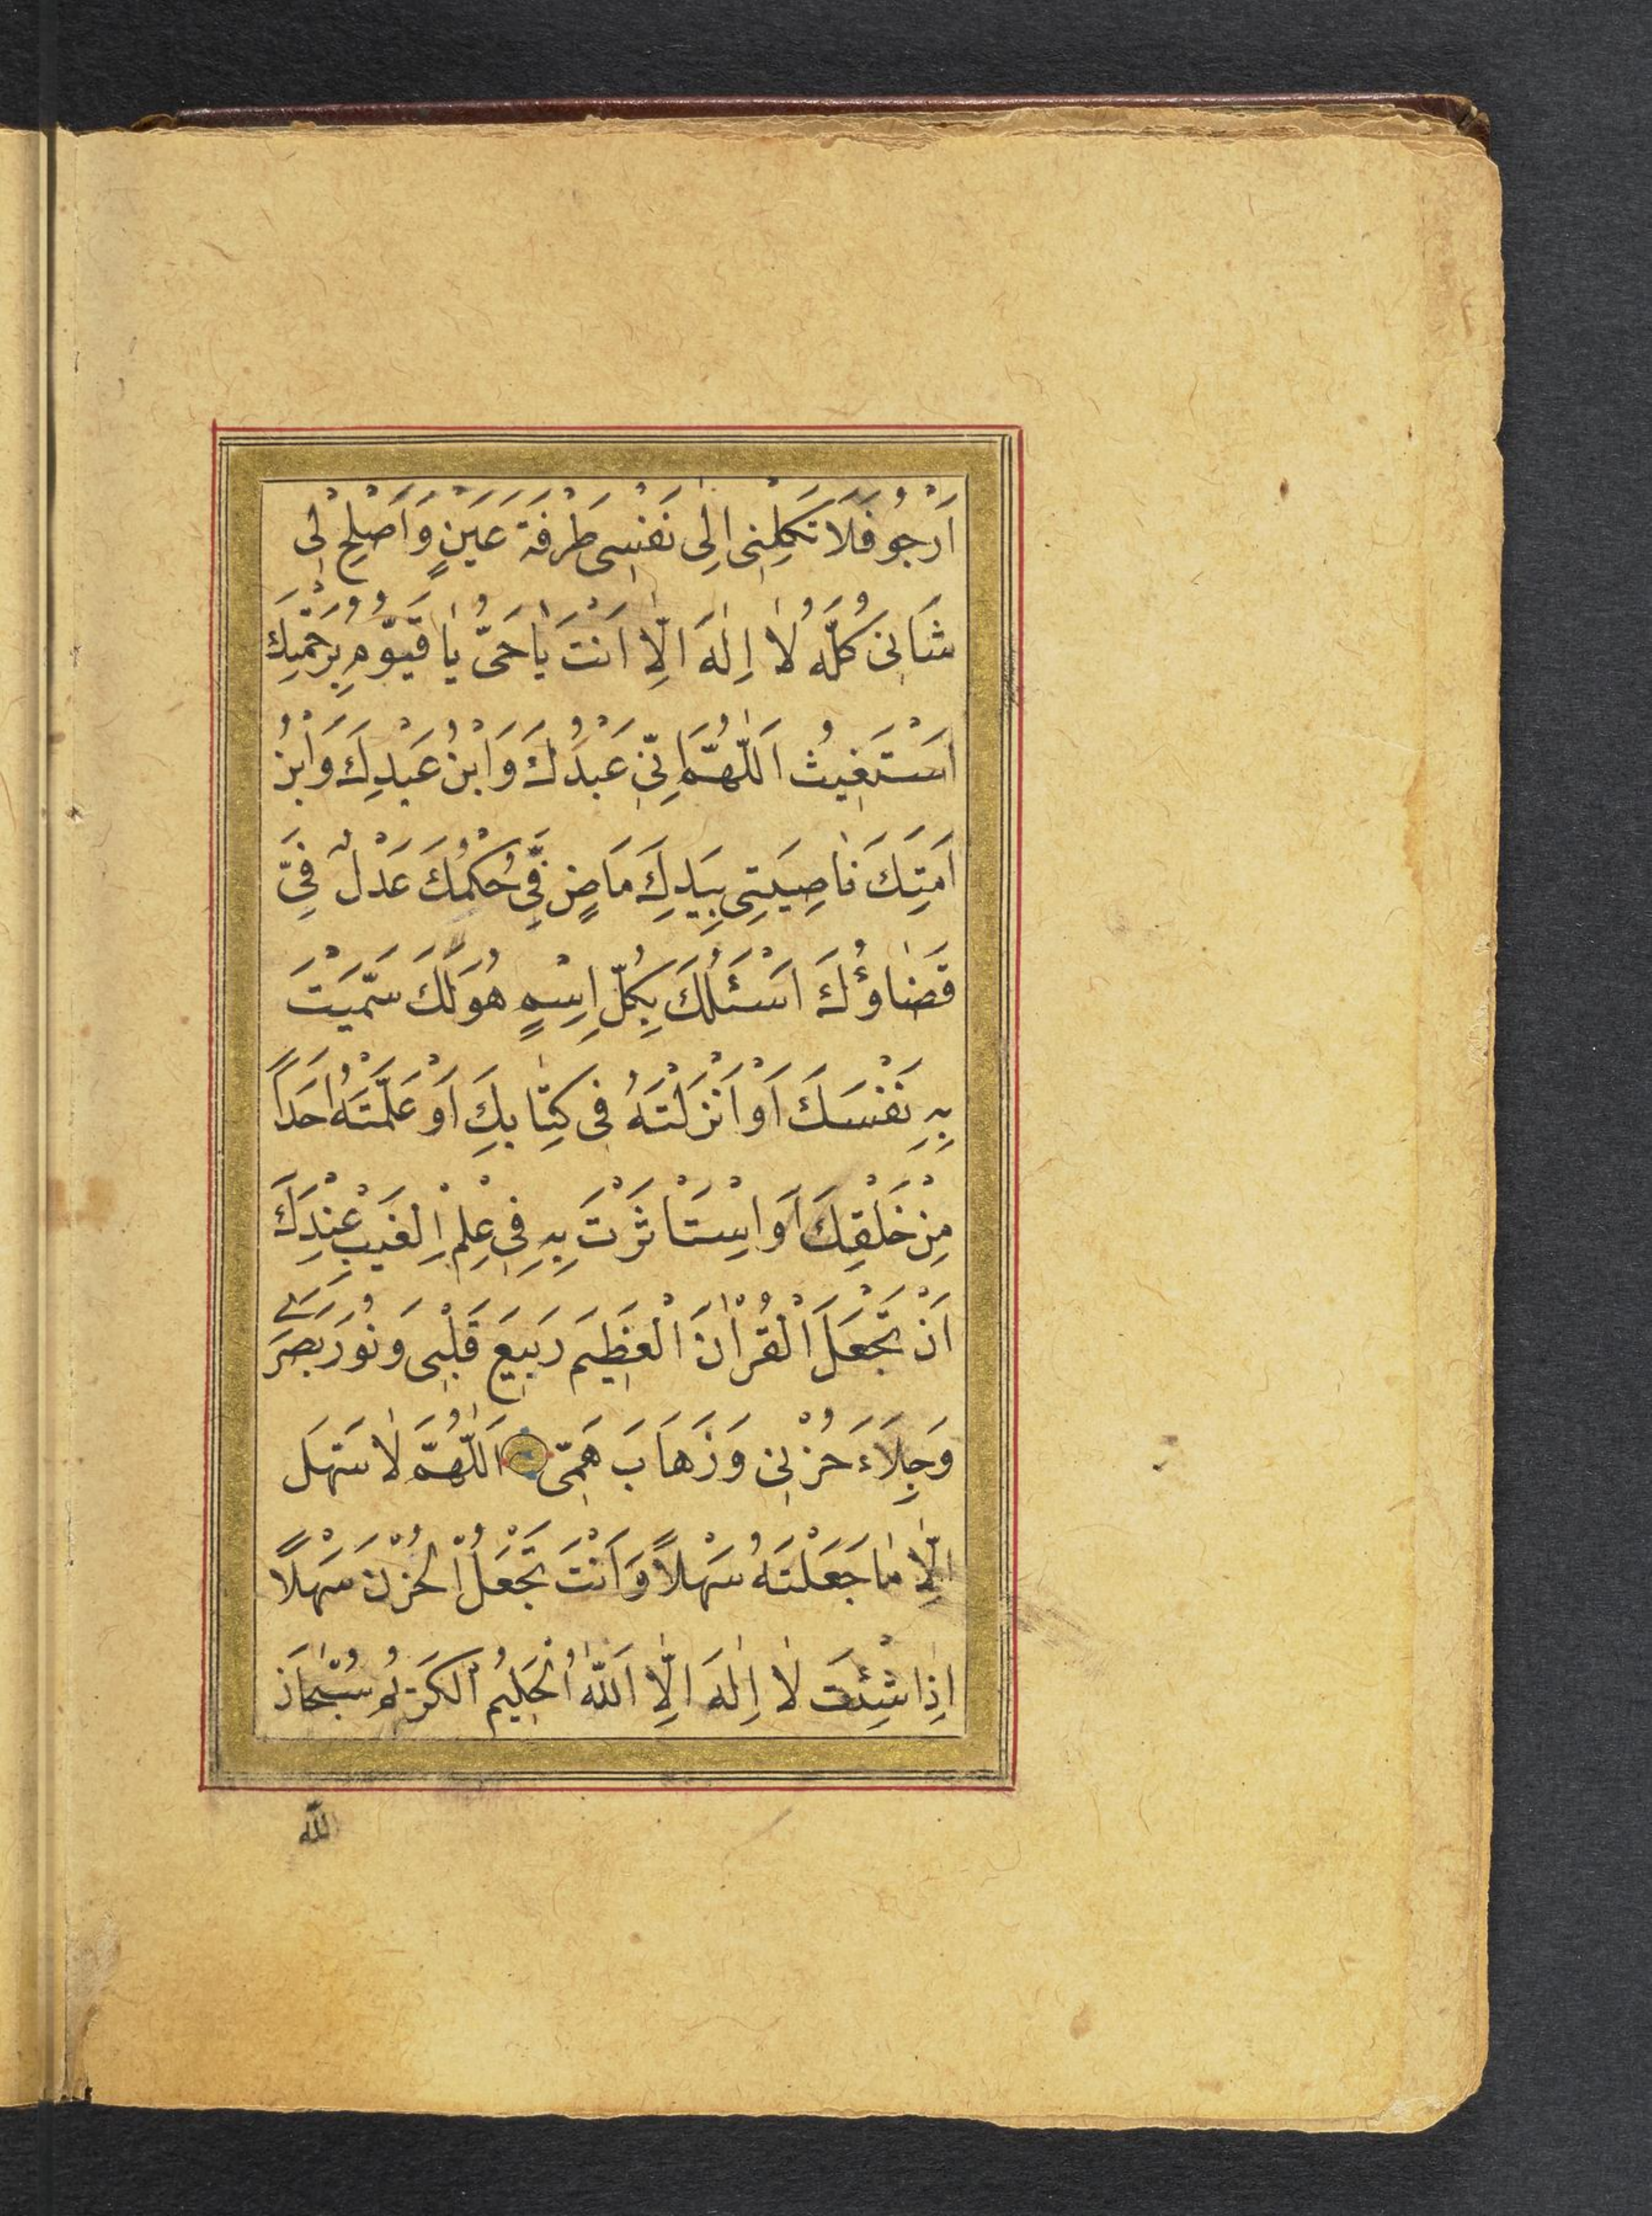 اَرْجُو فَلَا تَكِلْنِى اِلٰى نَفْسِى طَرْفَةَ عَيْنٍ وَاَصْلِحْ لِى
شَانِى كُلَّهُ لَا اِلٰهَ اِلَّا اَنْتَ يَا حَىُّ يَا قَيُّوُمِ بِرَحْمَتِكَ
اَسْتَغِيثُ اَللّٰهُمَّ اِنِّى عَبْدُكَ وَابْنُ عَبْدِكَ وَابْنُ
اَمَتِكَ نَاصِيَتِى بِيَدِكَ مَاضٍ فِىَّ حُكْمُكَ عَدْلٌ فِىَّ
قَضَاؤُكَ اَسْئَلُكَ بِكُلِّ اِسْمٍ هُوَ لَكَ سَمَّيْتَ
بِهِ نَفْسَكَ اَوْ اَنْزَلْتَهُ فِى كِتَابِكَ اَوْ عَلَّمْتَهُ اَحَدًا
مِنْ خَلْقِكَ اَوِ اسْتَاثَرْتَ بِهِ فِى عِلْمِ الْغَيْبِ عِنْدَكَ
اَنْ تَجْعَلَ الْقُرْاٰنَ الْعَظِيمَ رَبِيعَ قَلْبِى وَنُورَ بَصَرِى
وَجِلَاءَ حُزْنِى وَذَهَابَ هَمِّى اَللّٰهُمَّ لَا سَهْلَ
اِلَّا مَا جَعَلْتَهُ سَهْلًا وَاَنْتَ تَجْعَلُ الْحُزْنَ سَهْلًا
اِذَا شِئْتَ لَا اِلٰهَ اِلَّا اللّٰهُ الْحَلِيمُ الْكَرِيمُ سُبْحَانَ
اللّٰه